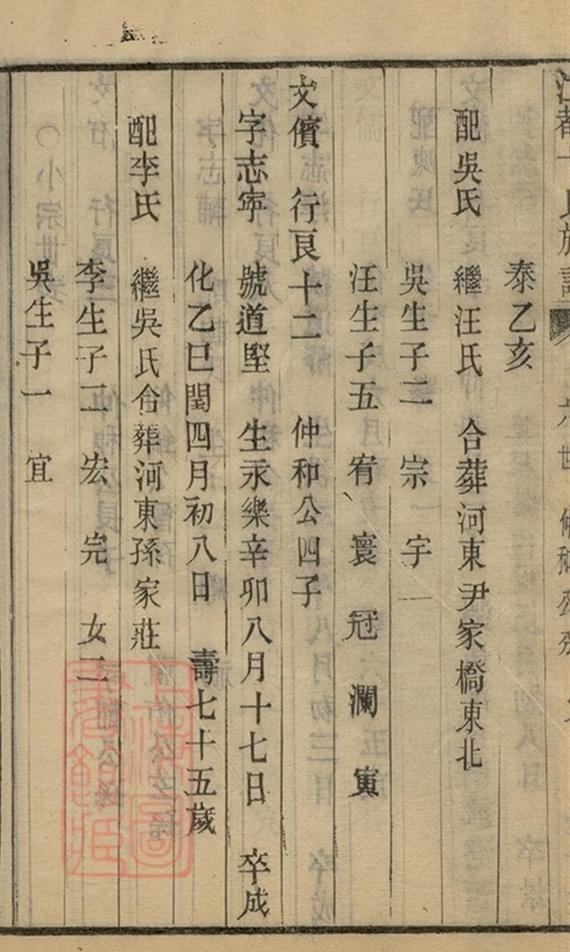 泰乙亥
配吳氏 繼汪氏 合葬河東尹家橋東北
吳生子二 宗 宇
汪生子五 宥 寰 冠 瀾 寅
文儐 行良十二 仲和公四子
字志寕 號道堅 生永樂辛卯八月十七日 卒成
化乙巳閏四月初八日 壽七十五歲
配李氏 繼吳氏合葬河東孫家莊
李生子二 宏 完 女二
吳生子一 宜